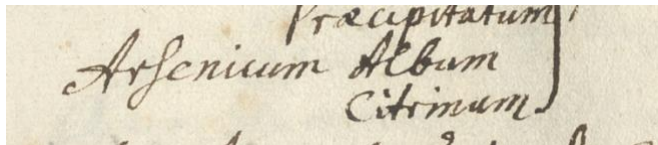 Præcipitatum
Arsenicum Album
Citrinum